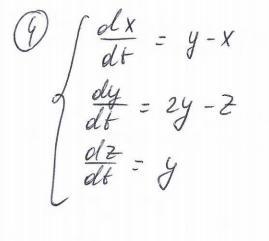 ④
dx/dt = y - x
dy/dt = 2y - z
dz/dt = y